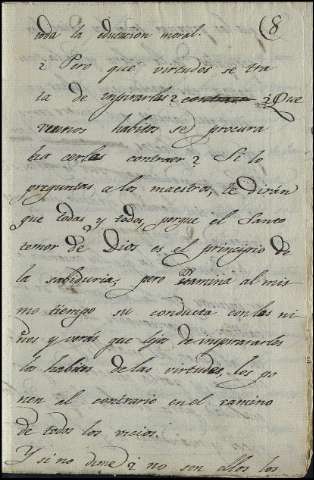 (8
toda la educacion moral.
¿ Pero que virtudes se tra
ta de inspirarlas? ¿Que
buenos habitos se procura
hacerlas contraer? Si lo
preguntas a los maestros, te dirán
que todas y todos, porque el Santo
temor de Dios es el principio de
la sabiduria; pero examina al mis
mo tiempo su conducta con las ni
ñas y verás que lejos de inspirararlas
los habitos de las virtudes, las po
nen al contrario en el camino
de todos los vicios.
Y si no dime ¿ no son ellos los